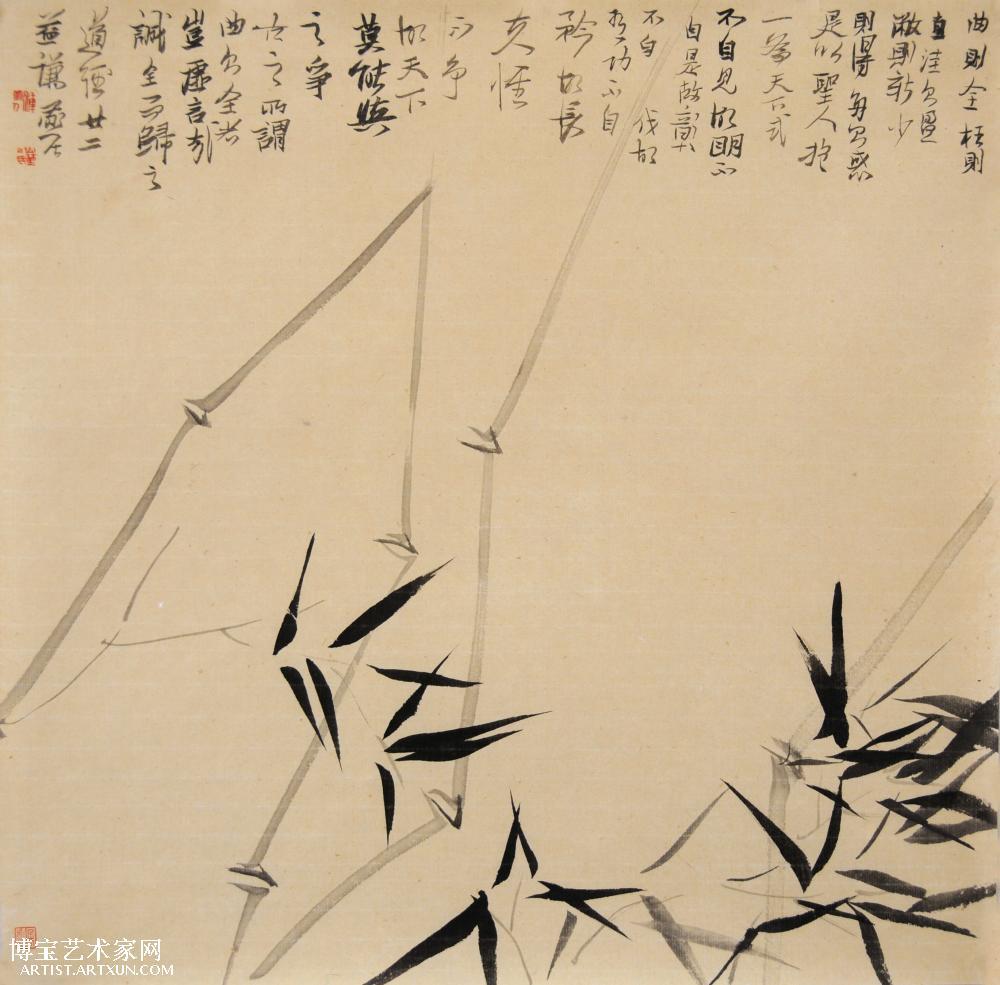 曲則全枉則
直洼則盈
敝則新少
則得多則惑
是以聖人抱
一為天下式
不自見故明不
自是故彰
不自伐故
有功不自
矜故長
夫惟
不争
故天下
莫能與
之爭
古之所謂
曲則全者
豈虛言哉
誠全而歸之
道經廿二
博宝艺术家网
ARTIST.ARTXUN.COM